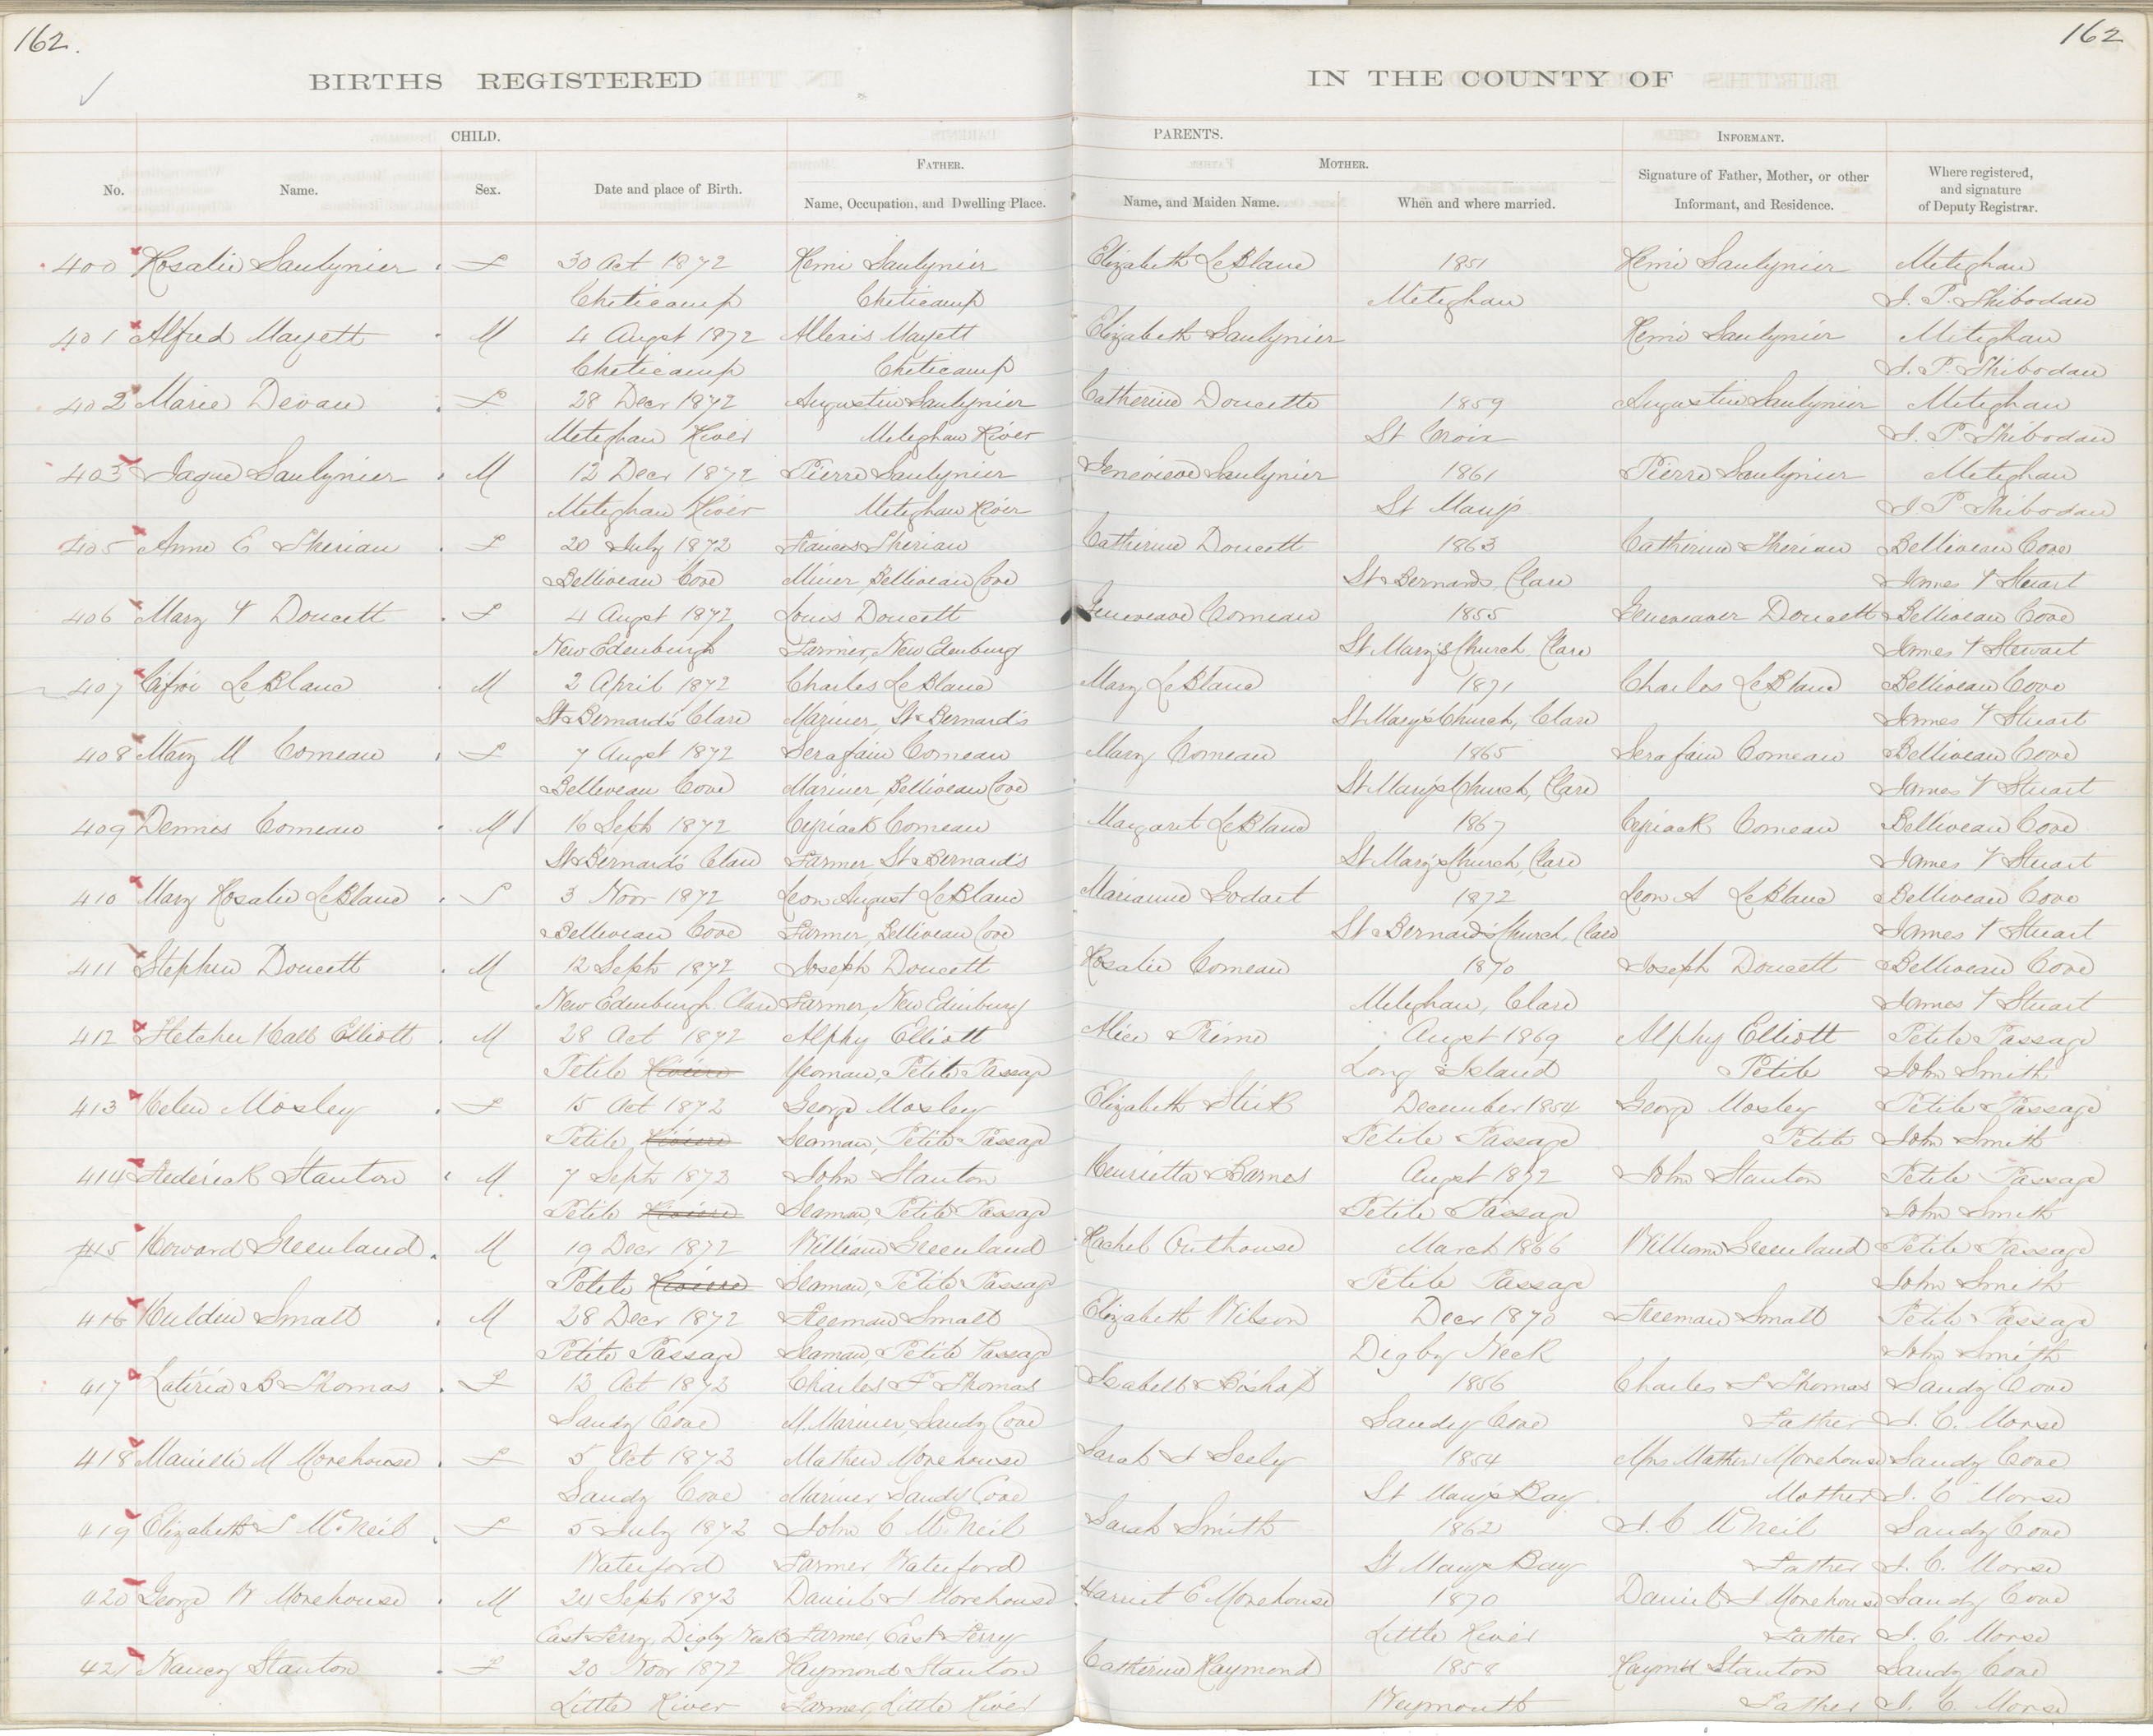 162.
162
BIRTHS REGISTERED IN THE COUNTY OF
CHILD. PARENTS. INFORMANT.
FATHER. MOTHER.
No. Name. Sex. Date and place of Birth. Name, Occupation, and Dwelling Place. Name, and Maiden Name. When and where married. Signature of Father, Mother, or other Informant, and Residence. Where registered, and signature of Deputy Registrar.
400 Rosalie Saulynier F 30 Oct 1872 Remi Saulynier Elizabeth LeBlanc 1851 Remi Saulynier Meteghan
Cheticamp Cheticamp Meteghan J. P. Thibodau
401 Alfred Mayett M 4 Augst 1872 Allexis Mayett Elizabeth Saulynier Remi Saulynier Meteghan
Cheticamp Cheticamp J. P. Thibodau
402 Marie Devau F 28 Decr 1872 Augustin Saulynier Catherine Doucette 1859 Augustin Saulynier Meteghan
Meteghan River Meteghan River St Croix J. P. Thibodau
403 Jaque Saulynier M 12 Decr 1872 Pierre Saulynier Genevieve Saulynier 1861 Pierre Saulynier Meteghan
Meteghan River Meteghan River St Mary's J P Thibodau
405 Anne E Therian F 20 July 1872 Francis Therian Catherine Doucett 1863 Catherine Therian Belliveau Cove
Belliveau Cove Miner, Belliveau Cove St Bernards, Clare James F Stuart
406 Mary F Doucett F 4 Augst 1872 Louis Doucett Geneveave Comeau 1855 Geneveaver Doucett Belliveau Cove
New Edenburgh Farmer, New Edenburg St Mary's Church, Clare James F Stewart
407 LeBlanc M 2 April 1872 Charles LeBlanc Mary LeBlanc 1871 Charles LeBlanc Belliveau Cove
St Bernard's Clare Mariner, St Bernard's St Mary's Church, Clare James F Stuart
408 Mary M Comeau F 7 Augst 1872 Serafain Comeau Mary Comeau 1865 Serafain Comeau Belliveau Cove
Belliveau Cove Mariner, Belliveau Cove St Mary's Church, Clare James F Stuart
409 Dennis Comeau M 16 Sept 1872 Cyriack Comeau Margaret LeBlanc 1867 Cyriack Comeau Belliveau Cove
St Bernard's Clare Farmer, St Bernard's St Mary's Church, Clare James F Stuart
410 Mary Rosalie LeBlanc F 3 Novr 1872 Leon August LeBlanc Marianne Godart 1872 Leon A LeBlanc Belliveau Cove
Belliveau Cove Farmer, Belliveau Cove St Bernard's Church, Clare James F Stuart
411 Stephen Doucett M 12 Sept 1872 Joseph Doucett Rosalie Comeau 1870 Joseph Doucett Belliveau Cove
New Edenburgh Clare Farmer, New Edinburg Meteghan, Clare James F Stuart
412 Fletcher Hall Elliott M 28 Oct 1872 Alphy Elliott Alice Prime Augst 1869 Alphy Elliott Petite Passage
Petite Riviere Yeoman, Petite Passage Long Island Petite John Smith
413 Helen Mosley F 15 Oct 1872 George Mosley Elizabeth December 1854 George Mosley Petite Passage
Petite Riviere Seaman, Petite Passage Petite Passage Petite John Smith
414 Frederick Stanton M 7 Sept 1872 John Stanton Henrietta Barnes Augst 1872 John Stanton Petite Passage
Petite Riviere Seaman, Petite Passage Petite Passage John Smith
415 Howard Greenland M 19 Decr 1872 William Greenland Rachel Outhouse March 1866 William Greenland Petite Passage
Petite Riviere Seaman, Petite Passage Petite Passage John Smith
416 Small M 28 Decr 1872 Freeman Small Elizabeth Wilson Decr 1870 Freeman Small Petite Passage
Petite Passage Seaman, Petite Passage Digby Neck John Smith
417 B Thomas F 12 Oct 1872 Charles F Thomas Isabell Bishop 1856 Charles F Thomas Sandy Cove
Sandy Cove M. Mariner, Sandy Cove Sandy Cove Father J. C. Morse
418 M Morehouse F 5 Oct 1872 Mathew Morehouse Sarah J Seely 1854 Mrs Mathew Morehouse Sandy Cove
Sandy Cove Mariner Sandy Cove St Mary's Bay Mother J. C Morse
419 Elizabeth S McNeil F 5 July 1872 John C McNeil Sarah Smith 1862 J. C McNeil Sandy Cove
Waterford Farmer, Waterford St Marys Bay Father J. C. Morse
420 George W Morehouse M 24 Sept 1872 Daniel J Morehouse Harriet E Morehouse 1870 Daniel J Morehouse Sandy Cove
East Ferry, Digby Neck Farmer, East Ferry Little River Father J. C. Morse
421 Nancy Stanton F 20 Novr 1872 Raymond Stanton Catherine Raymond 1858 Raym'd Stanton Sandy Cove
Little River Farmer, Little River Weymouth Father J. C. Morse